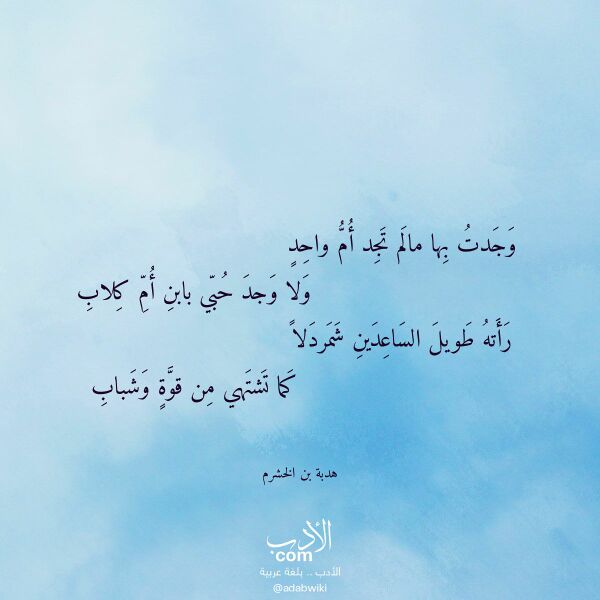 وَجَدتُ بِها مالَم تَجِد أُمُّ واحِدٍ
وَلا وَجدَ حُبّي بابنِ أُمِّ كِلابِ
رَأَتهُ طَويلَ السَاعِدَينِ شَمَردَلاً
كَما تَشتَهي مِن قوَّةٍ وَشَبابِ
هدبة بن الخشرم
الأدب
com
الأدب .. بلغة عربية
@adabwiki